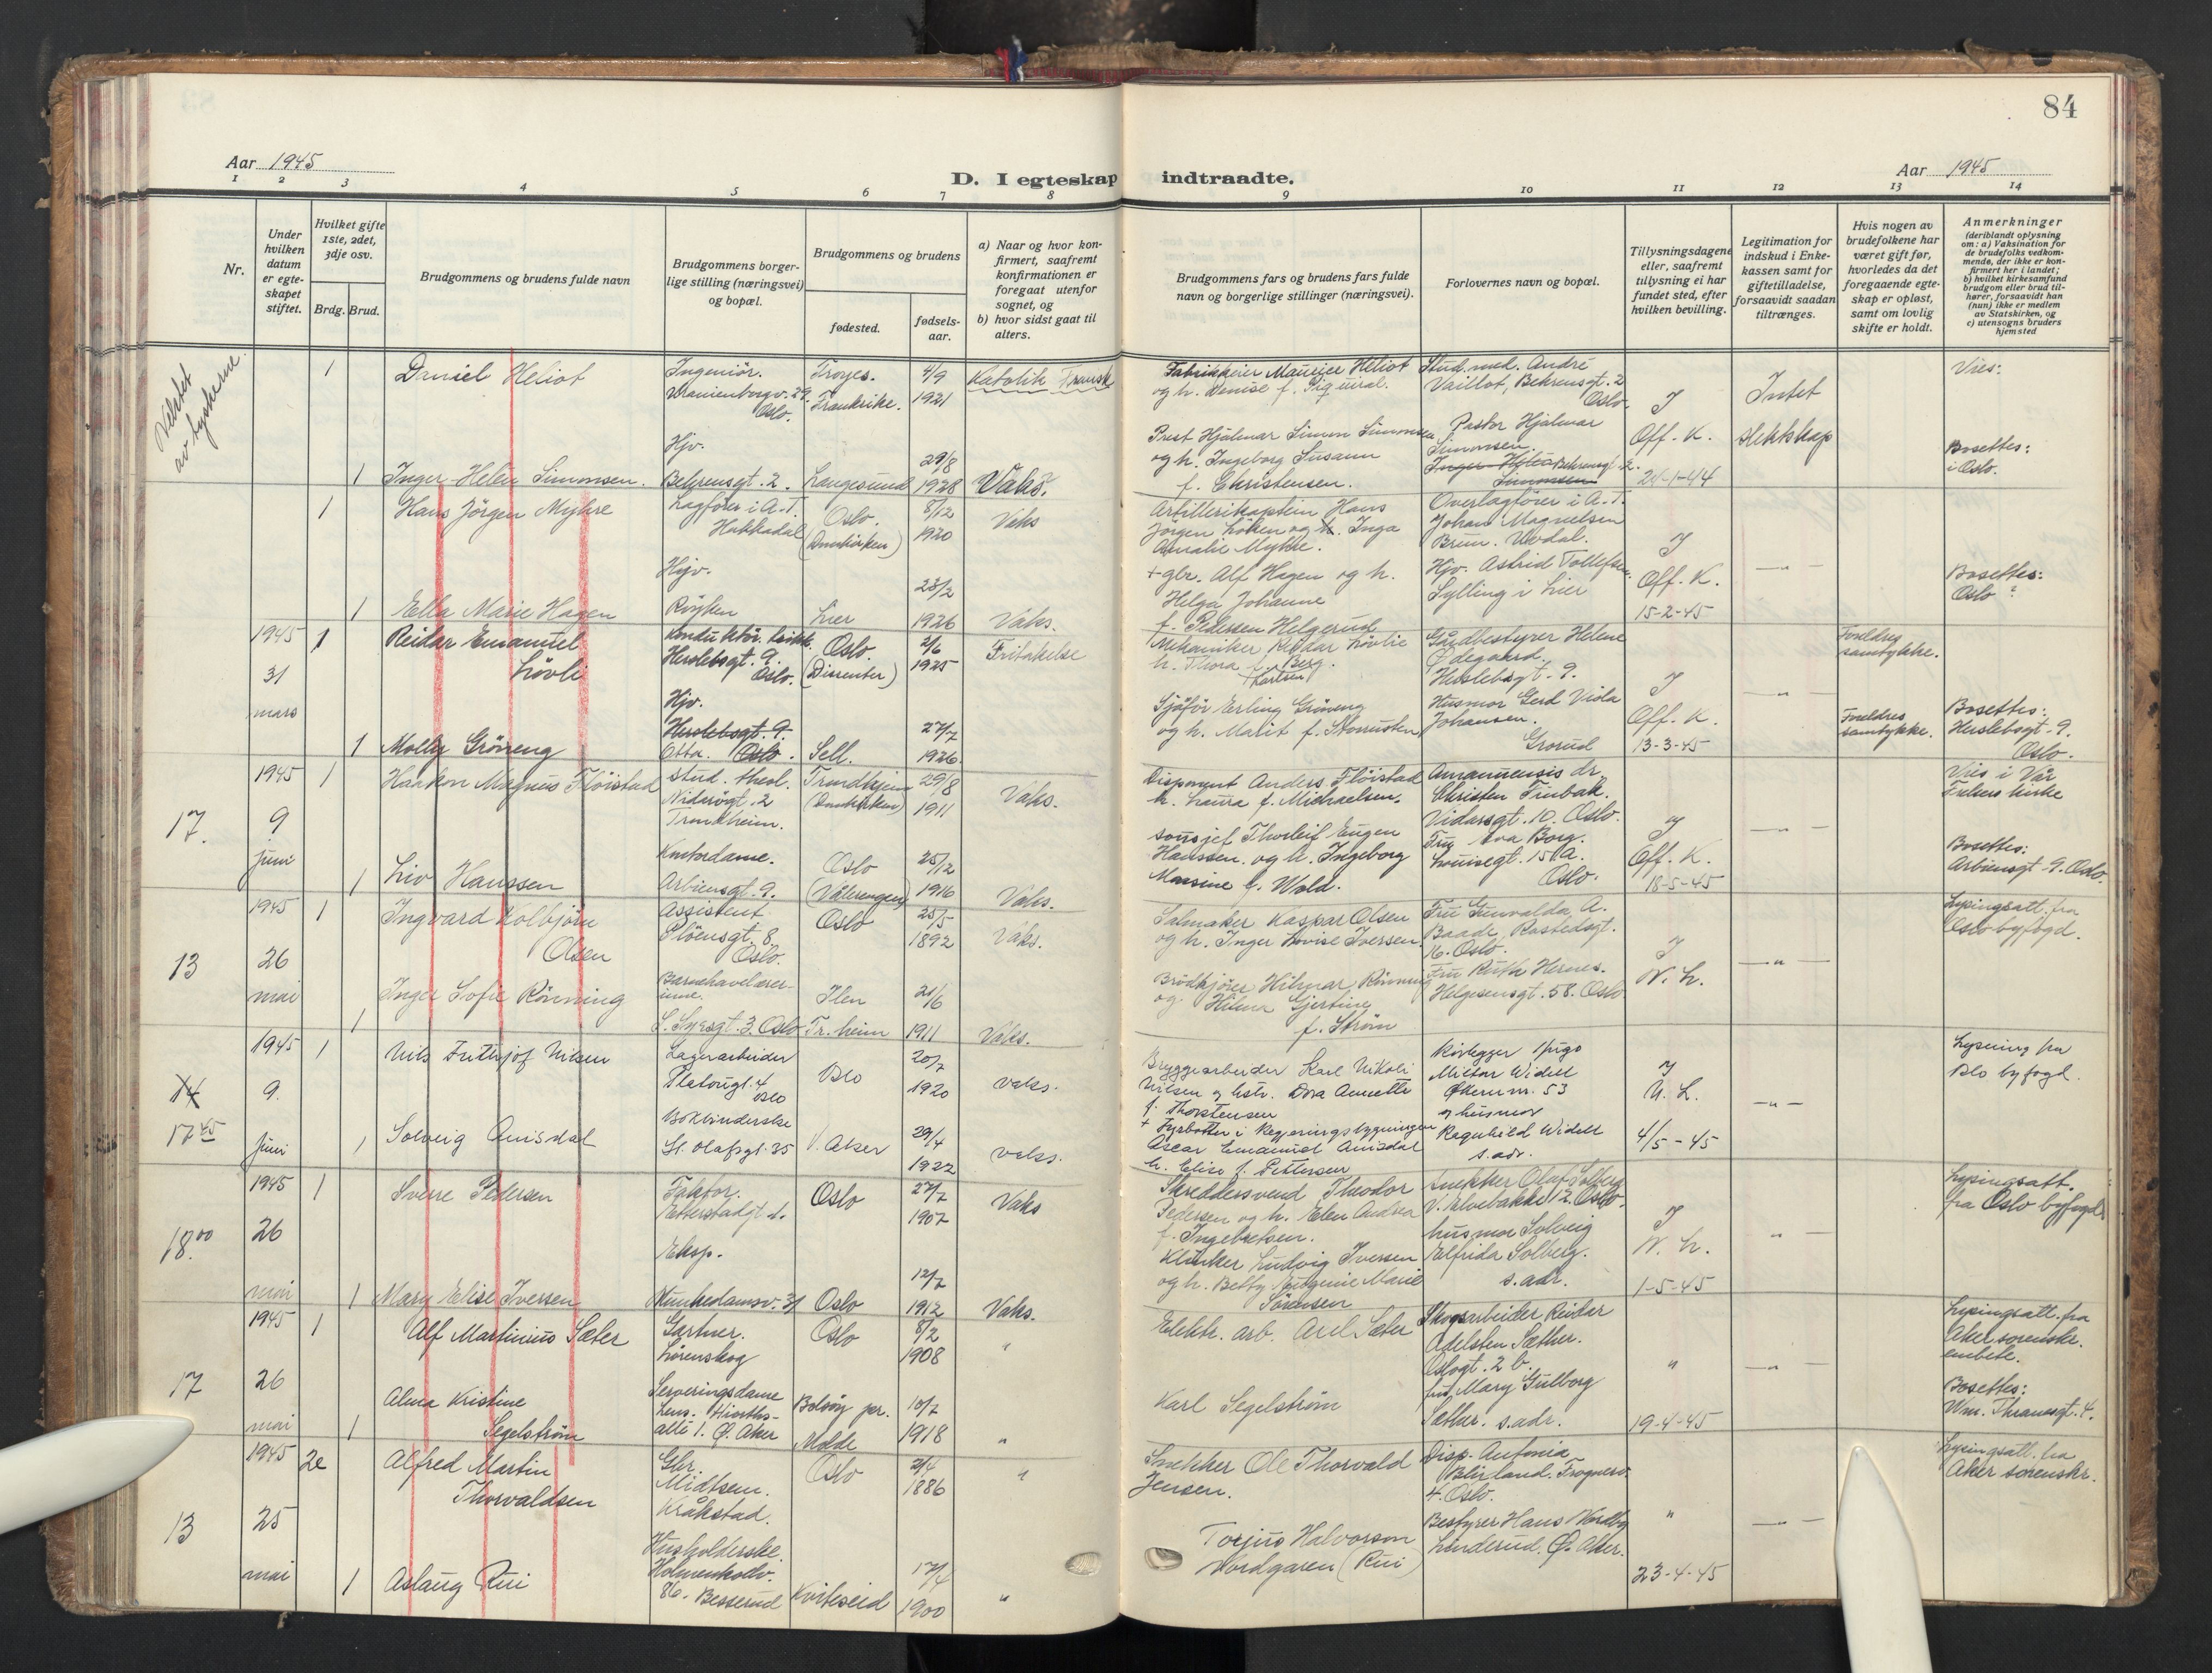 84
Aar 1945
Aar 1945
D. I egteskap indtraadte.
1 2 3 4 5 6 7 8 9 10 11 12 13 14
Nr.
Under hvilken datum er egteskapet stiftet.
Hvilket gifte 1ste, 2det, 3dje osv.
Brdg. Brud.
Brudgommens og brudens fulde navn
Brudgommens borgerlige stilling (næringsvei) og bopæl.
Brudgommens og brudens
fødested.
fødselsaar.
a) Naar og hvor konfirmert, saafremt konfirmationen er foregaat utenfor sognet, og
b) hvor sidst gaat til alters.
Brudgommens fars og brudens fars fulde navn og borgerlige stillinger (næringsvei).
Forlovernes navn og bopæl.
Tillysningsdagene eller, saafremt tillysning ei har fundet sted, efter hvilken bevilling.
Legitimation for indskud i Enkekassen samt for giftetilladelse, forsaavidt saadan tiltrænges.
Hvis nogen av brudefolkene har været gift før, hvorledes da det foregaaende egteskap er opløst, samt om lovlig skifte er holdt.
Anmerkninger
(deriblandt oplysning om: a) Vaksination for de brudefolks vedkommende, der ikke er konfirmert her i landet; b) hvilket kirkesamfund brudgom eller brud tilhører, forsaavidt han (hun) ikke er medlem av Statskirken, og c) utensogns bruders hjemsted
Nektet av tyskerne.
1 Daniel Heliot
Ingeniör. Uranienborgv. 29. Oslo.
Troyes. Frankrike.
4/9 1921
Katolik Fransk
Fabrikkeier Maurice Héliot
og h. Denise f.
Stud. med. André
Vaillot, Behrensgt. 2
Oslo.
J
Off. K.
24-1-44
Intet
slektskap
Vies:
Bosettes:
i Oslo.
1 Inger-Helen Simonsen.
Hjv.
Behrensgt. 2.
Langesund
29/8 1928
Vaks.
Prest Hjalmar Simon Simonsen
og h. Ingeborg Susann
f. Christensen.
Pastor Hjalmar
Simonsen.
Behrensgt. 2.
1 Hans Jörgen Myhre
Lagförer i A-T.
Hakkadal
Oslo.
(Domkirken)
8/12 1920
Vaks
Artillerikaptein Hans
Jörgen Löken og h. Inga
Amalie Myhre.
Overlagförer i A.T.
Johan Magnelsen
Brun. Uvdal.
J
Off. K.
15-2-45
— " —
Bosettes:
Oslo ?
1 Ella Marie Hagen
Hjv.
Röyken
Lier
23/2 1926
Vaks.
+ gbr. Alf Hagen og h.
Helga Johanne
f. Pedersen Helgerud
Hjv. Astrid Tollefsen.
Sylling i Lier
1945
31
mars
1 Reidar Emanuel
Lövli
Herslebsgt. 9.
Oslo.
Oslo.
(Dissenter)
2/6 1925
Fritakelse
Mekaniker Reidar Lövlie
h. Thora f. Berg.
Karlsen
Gårdbestyrer Helene
Ødegaard.
Herslebsgt. 9.
J
Off. K.
13-3-45
— " —
Foreldres
samtykke.
1 Molly Gröneng
Hjv.
Herslebsgt. 9.
Otta. Oslo.
Sell.
27/7 1926
Sjåför Erling Gröneng
og h. Marit f. Storrusten
Husmor Gerd Viola
Johansen.
Grorud
Foreldres
samtykke.
Bosettes:
Herslebsgt. 9.
Oslo.
17.
1945
9
juni
1 Haakon Magnus Flöistad
Stud. theol.
Nidarögt. 2
Trondheim.
Trondhjem
(Domkirken)
29/8 1911
Vaks.
Disponent Anders Flöistad
h. Laura f. Michaelsen.
Amanuensis dr.
Christen Finbak.
Vidarsgt. 10. Oslo.
J
Off. K.
18-5-45
— " —
Vies i Vår
Frelsers kirke
1 Liv Hanssen
Kontordame.
Arbiensgt. 9.
Oslo
(Vålerengen)
25/12 1916
Vaks.
sousjef Thorleif Eugen
Hanssen. og h. Ingeborg
Marsine f. Wold.
Fru Eva Borg.
Louisegt. 15 A.
Oslo.
Bosettes:
Arbiensgt. 9. Oslo.
13
1945
26
mai
1 Ingvard Kolbjörn
Olsen
Assistent
Plöensgt. 8
Oslo.
Oslo
25/5 1892
Vaks.
Salmaker Kaspar Olsen
og h. Inger Lovise Iversen.
Fru Gunvalda A.
Baade, Rostedsgt.
16. Oslo.
J
N. L.
— " —
Lysingsatt. fra
Oslo byfogd.
1 Inger Sofie Rönning
Barnehavelærerinne.
S. Syrsgt. 3. Oslo
Ilen
Tr.heim
21/6 1911
Vaks.
Brödkjörer Hilmar Rönning
og Hilma Gjertine
f. Ström
Fru Ruth Hernes.
Helgesensgt. 58. Oslo
14
17 45
1945
9.
Juni
1 Nils Frithjof Nilsen
Lagerarbeider
Platousgt. 4
Oslo
Oslo
20/7 1920
vaks.
Bryggearbeider Karl Nikolai
Nilsen og hstr. Dora Annette
f. Thorstensen
Rörlegger Hugo
Milton Widell
Økernvn. 53
J
N. L.
4/5 - 45
— " —
Lysning fra
Oslo byfogd.
1 Solveig Amisdal
Bokbinderske
St. Olafsgt. 35
V. Aker
29/4 1922
vaks.
+ Fyrbøter i Regjeringsbygningen
Oscar Emanuel Amisdal
h. Elise f. Pettersen
og husmor
Ragnhild Widell
s. adr.
18.00
1945
26
mai
1 Sverre Pedersen
Faktor.
Etterstadgt. 1.
Oslo
27/7 1907
Vaks
Skreddersvend Theodor
Pedersen og h. Elen Andrea
f. Ingebretsen.
Snekker Olaf Solberg
V. Elvebakke 12. Oslo.
J
N. L.
1-5-45
— " —
Lysingsatt.
fra Oslo byfogd
1 Mary Elise Iversen
Eksp.
Munkedamsv. 31
Oslo
12/7 1912
Vaks.
Klinker Ludvig Iversen
og h. Betty Eugenie Marie
Sörensen
husmor Solveig
Elfrida Solberg.
s. adr.
17
1945
26
mai
1 Alf Martinius Sæter
Gartner.
Lörenskog
Oslo
8/2 1908
"
Elektr. arb. Axel Sæter
Skogsarbeider Reidar
Adelsten Sæther.
Oslogt. 2 b.
"
19-4-45
— " —
Lysingsatt. fra
Aker sorenskr.
embete.
1 Alma Kristine
Segelström
Serveringsdame
Lens. Hiorths-
allé 1. Ø. Aker
Bolsöy pr.
Molde
10/7 1918
"
Karl Segelström
fru Mary Gulborg
Sæther. s. adr.
Bosettes:
Wm. Thranesgt. 4.
13
1945
25
mai
2e Alfred Martin
Thorvaldsen
Gbr.
Midtsem.
Kråkstad.
Oslo
2/4 1886
"
Snekker Ole Thorvald
Jensen.
Disp. Antonia
Blirland. Frognerv.
4. Oslo.
"
23-4-45
— " —
Lysingsatt. fra
Aker sorenskr.
1 Aslaug Rui
Husholderske.
Holmenkollv.
86. Besserud
Kviteseid
17/4 1900
"
Torjus Halvorson
Nordgaren (Rui)
Bestyrer Hans Nordby
Linderud. Ø. Aker.